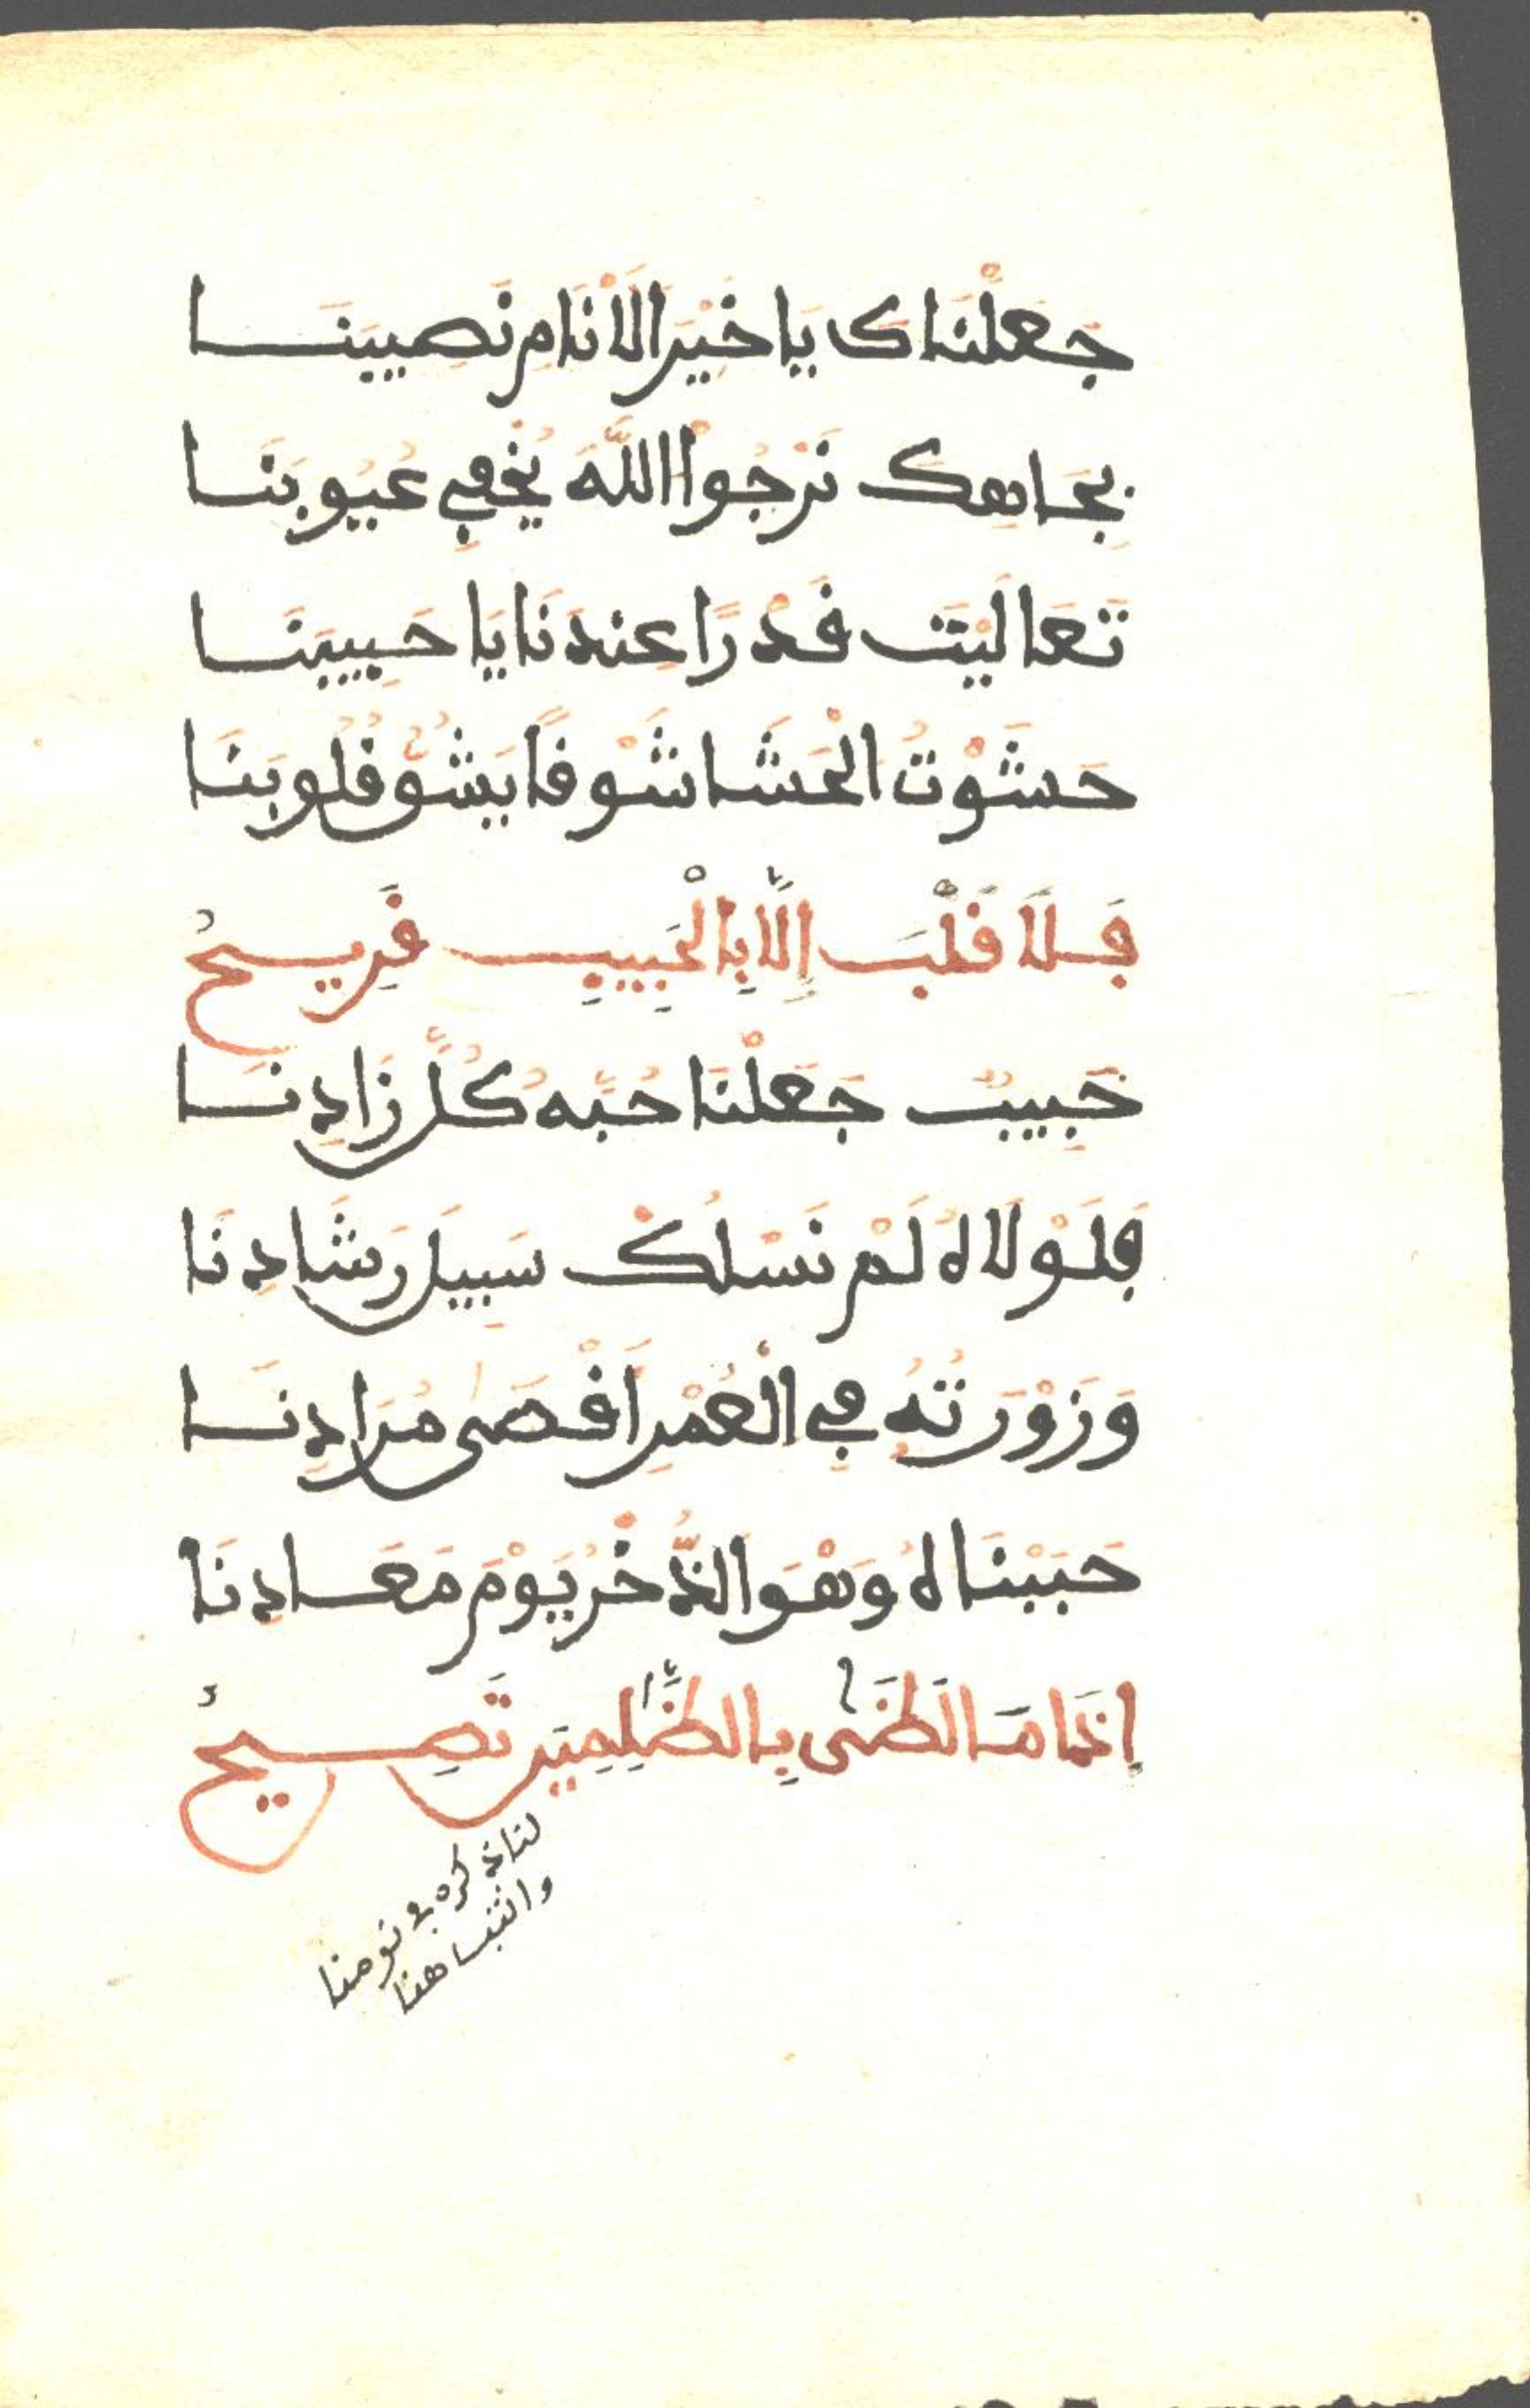 جَعَلْنَاكَ يَا خَيْرَ الْأَنَامِ نَصِيبَنَا
بِجَاهِكَ نَرْجُوا اللَّهَ يُخْفِي عُيُوبَنَا
تَعَالَيْتَ قَدْرًا عِنْدَنَا يَا حَبِيبَنَا
حَشَوْتَ الْحَشَا شَوْقًا يَشُقُّ قُلُوبَنَا
فَلَا قَلْبَ إِلَّا بِالْحَبِيبِ قَرِيحُ
حَبِيبٌ جَعَلْنَا حُبَّهُ كُلَّ زَادِنَا
فَلَوْلَاهُ لَمْ نَسْلُكْ سَبِيلَ رَشَادِنَا
وَزَوْرَتُهُ فِي الْعُمْرِ أَقْصَى مُرَادِنَا
حَبَبْنَاهُ وَهْوَ الذُّخْرُ يَوْمَ مَعَادِنَا
إِذَا مَا لَظَى بِالظَّلِمِينَ تَصِيحُ
لنا ذكره في نومنا
وانتباهنا